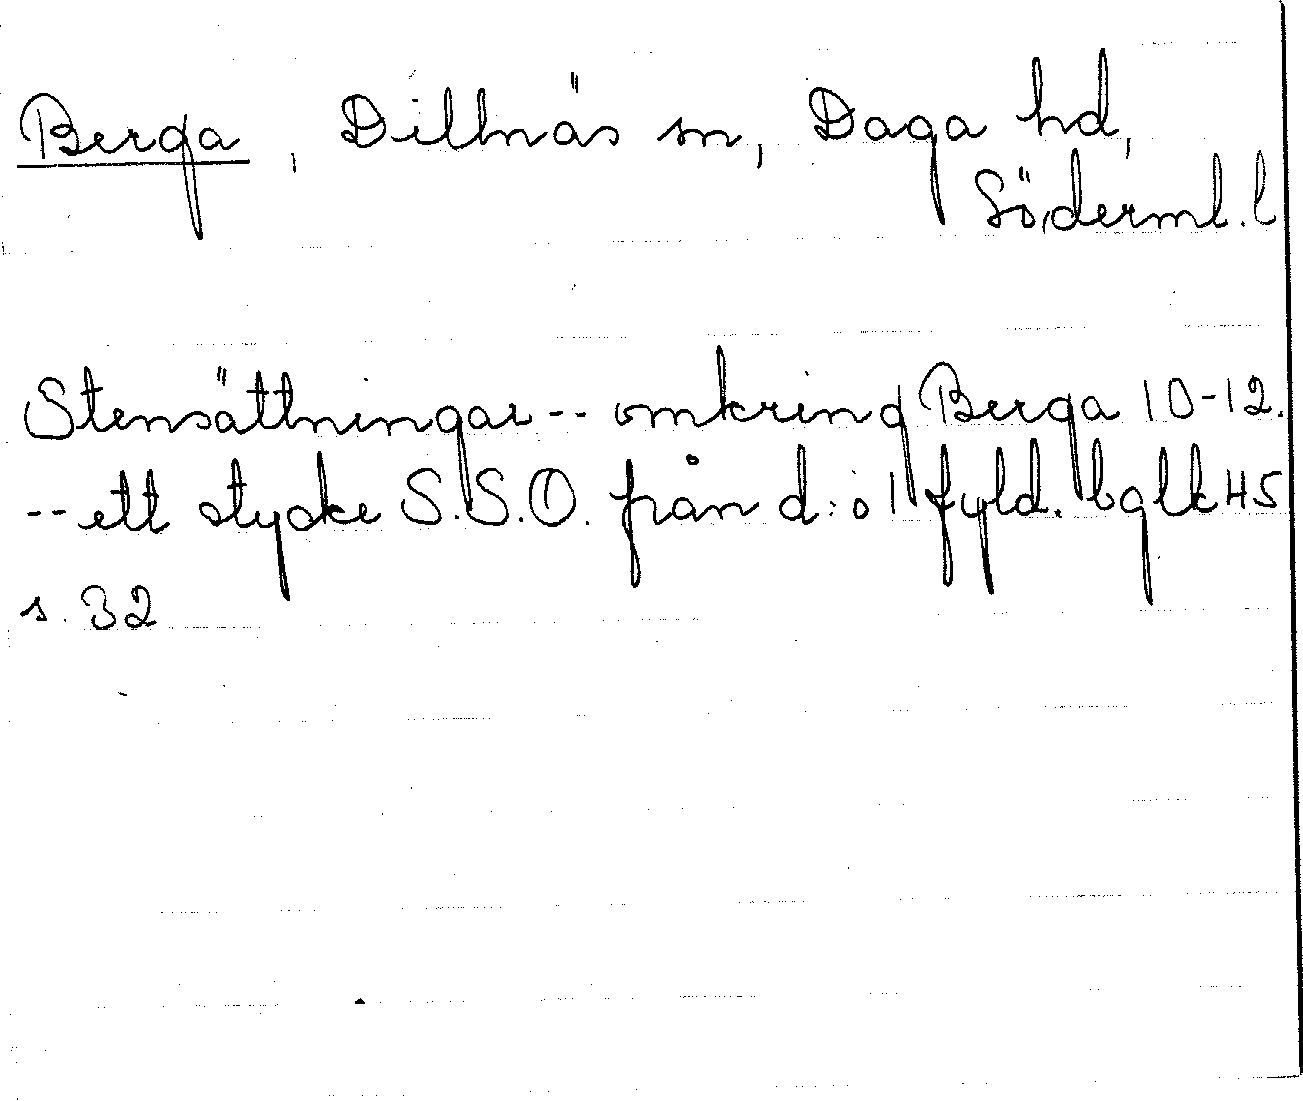 Berga, Dillnäs sn, Daga hd,
Söderml. l
Stensättningar -- omkring Berga 10-12.
-- ett stycke S.S.O. från d:o 1 fyld. bglk 45
s. 32